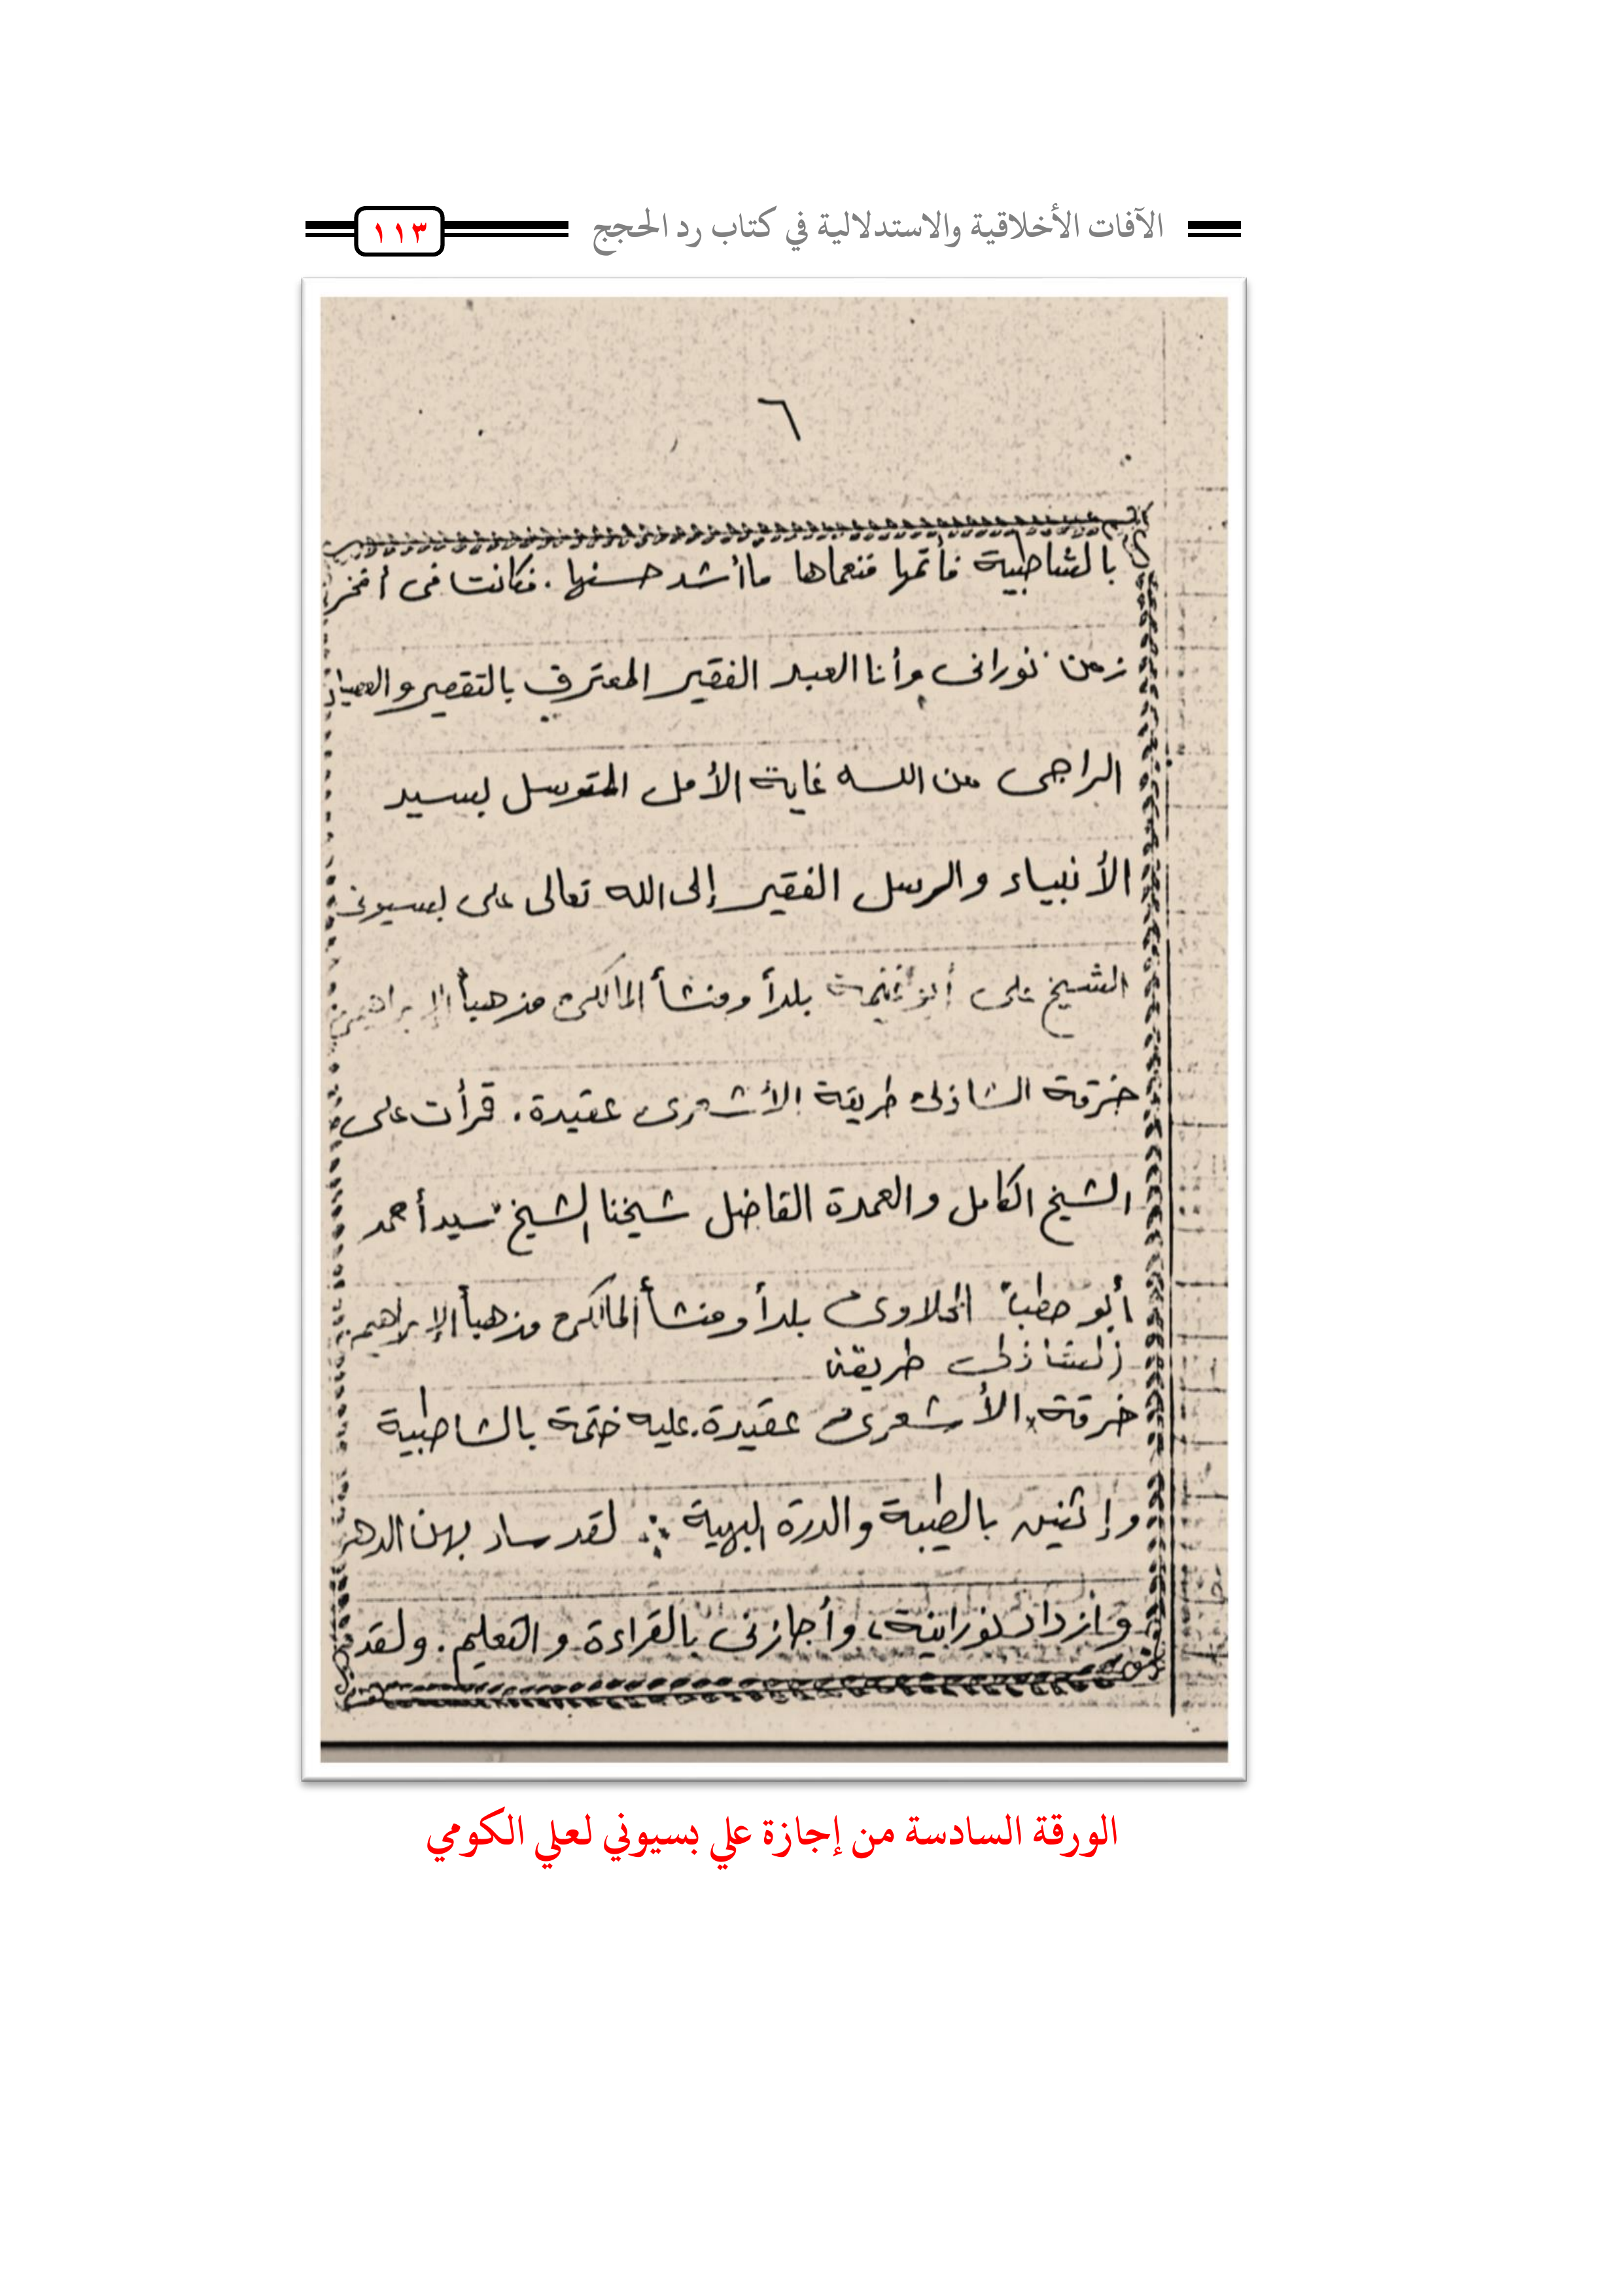 الآفات الأخلاقية والاستدلالية في كتاب رد الحجج
١١٣
٦
بالشاطبية فأتمها فنعماها ما أشد حسنها . فكانت فى أفخر
زمن نورانى وأنا العبد الفقير المعترف بالتقصير والعصيان
الراجى من الله غاية الأمل المتوسل بسيد
الأنبياء والرسل الفقير إلى الله تعالى على بسيونى
الشيخ على بلداً ومنشأ المالكى مذهباً الإبراهيمى
خرقة الشاذلى طريقة الأشعرى عقيدة . قرأت على
الشيخ الكامل والعمدة الفاضل شيخنا الشيخ سيد أحمد
أبو حطب بلداً ومنشأ المالكى مذهباً الإبراهيمى
الشاذلى طريقة
خرقة الأشعرى عقيدة . عليه ختمة بالشاطبية
وإثنين بالطيبة والدرة البهية ∴ لقد ساد بهن الدهر
وازداد نورانية ، وأجازنى بالقراءة والتعليم . ولقد
الورقة السادسة من إجازة علي بسيوني لعلي الكومي